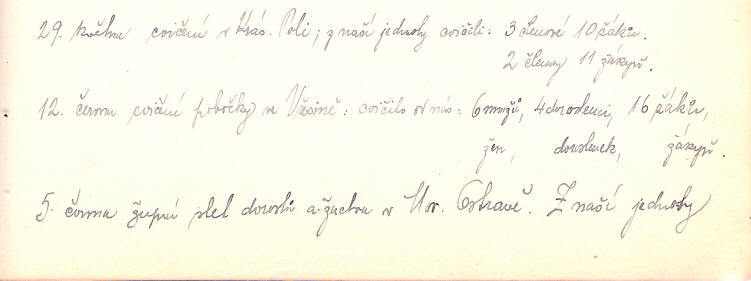 29. května cvičení v Krás. Poli; z naší jednoty cvičili: 3 členové 10 žáků.
2 členy 11 žákyň.
12. června cvičení pobočky ve Vřesině: cvičilo od nás: 6 mužů, 4 dorostenci, 16 žáků,
žen, dorostenek, žákyň.
5. června župní slet dorostu a žactva v Mor. Ostravě. Z naší jednoty